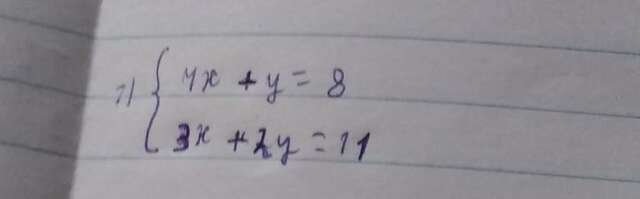 { 4x + y = 8
3x + 2y = 11